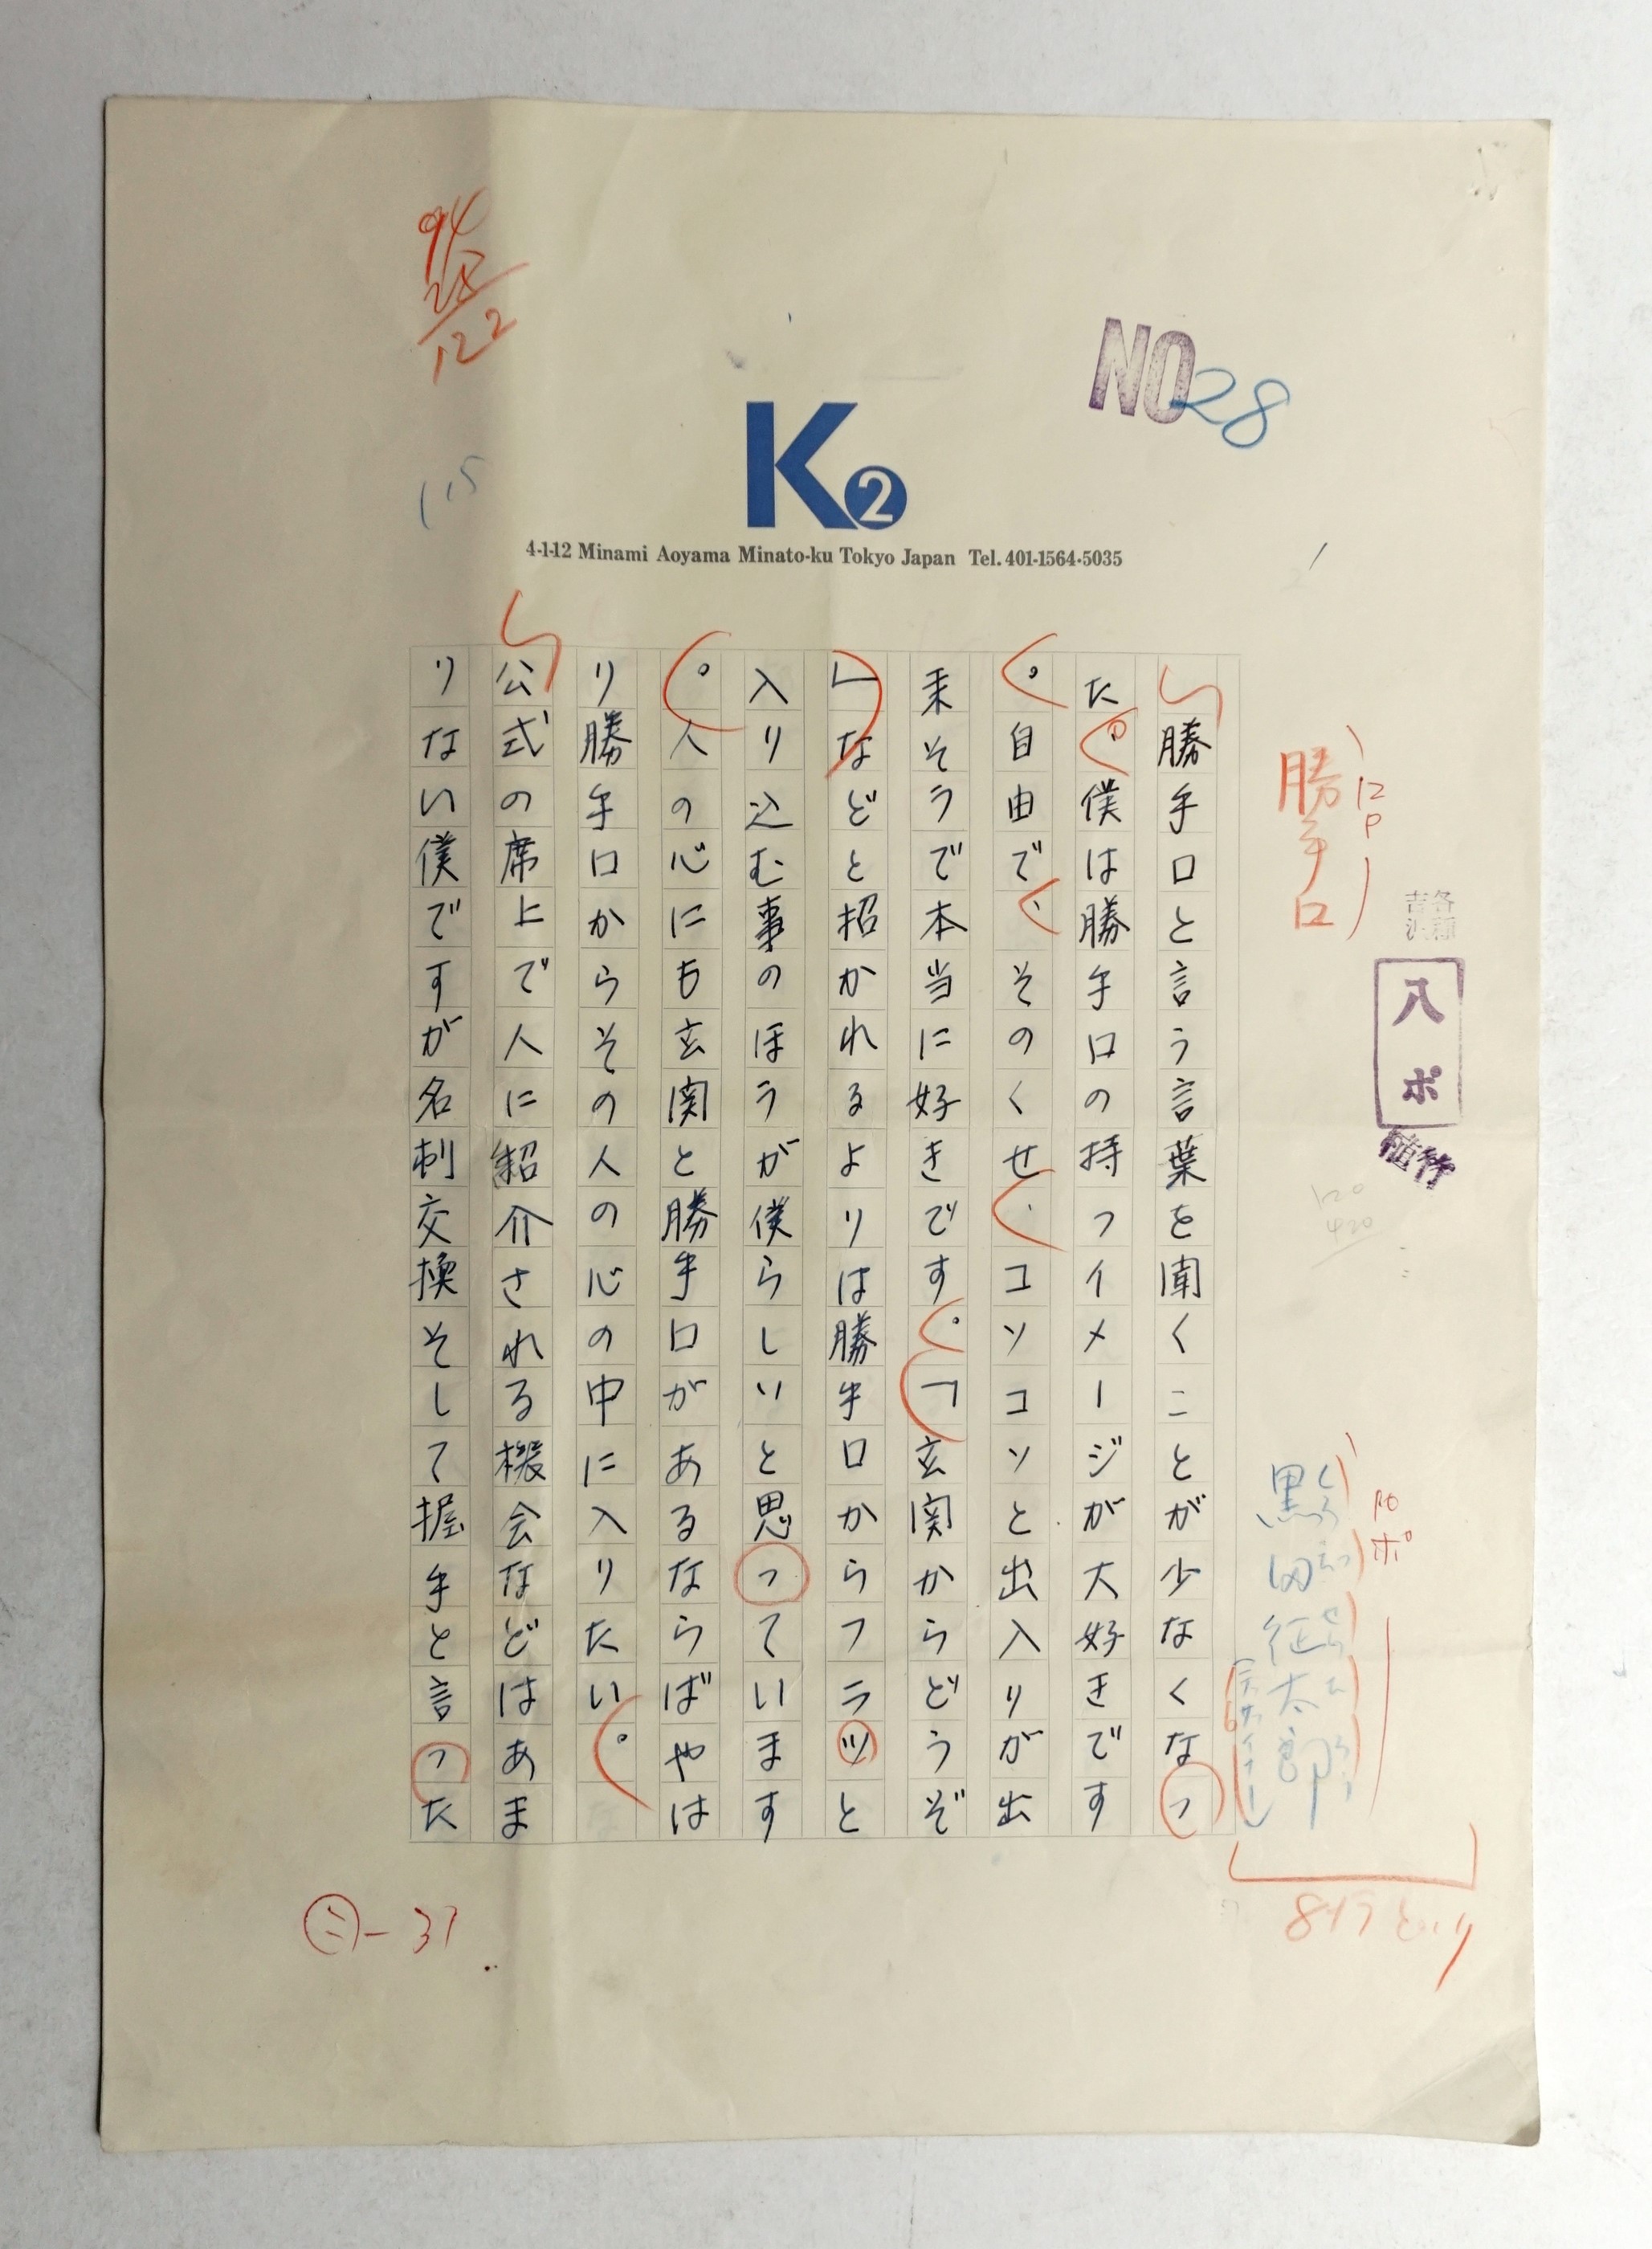 NO 28
K2
4-1-12 Minami Aoyama Minato-ku Tokyo Japan Tel. 401-1564-5035
12P
勝手口
八ポ
植竹
黒田征太郎
勝手口と言う言葉を聞くことが少なくなっ
た。僕は勝手口の持つイメージが大好きです
。自由で、そのくせ、コソコソと出入りが出
来そうで本当に好きです。「玄関からどうぞ
」などと招かれるよりは勝手口からフラッと
入り込む事のほうが僕らしいと思っています
。人の心にも玄関と勝手口があるならばやは
り勝手口からその人の心の中に入りたい。
公式の席上で人に紹介される機会などはあま
りない僕ですが名刺交換そして握手と言った
94
28
122
115
㊁-37